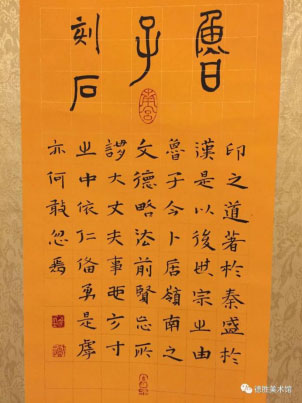 魯
子
刻石
印之道著於秦盛於
漢是以後世宗之由
魯子今卜居嶺南之
文德略法前賢忘所
謬大丈夫事方寸
之中依仁備勇是處
亦何敢忽焉
德胜美术馆